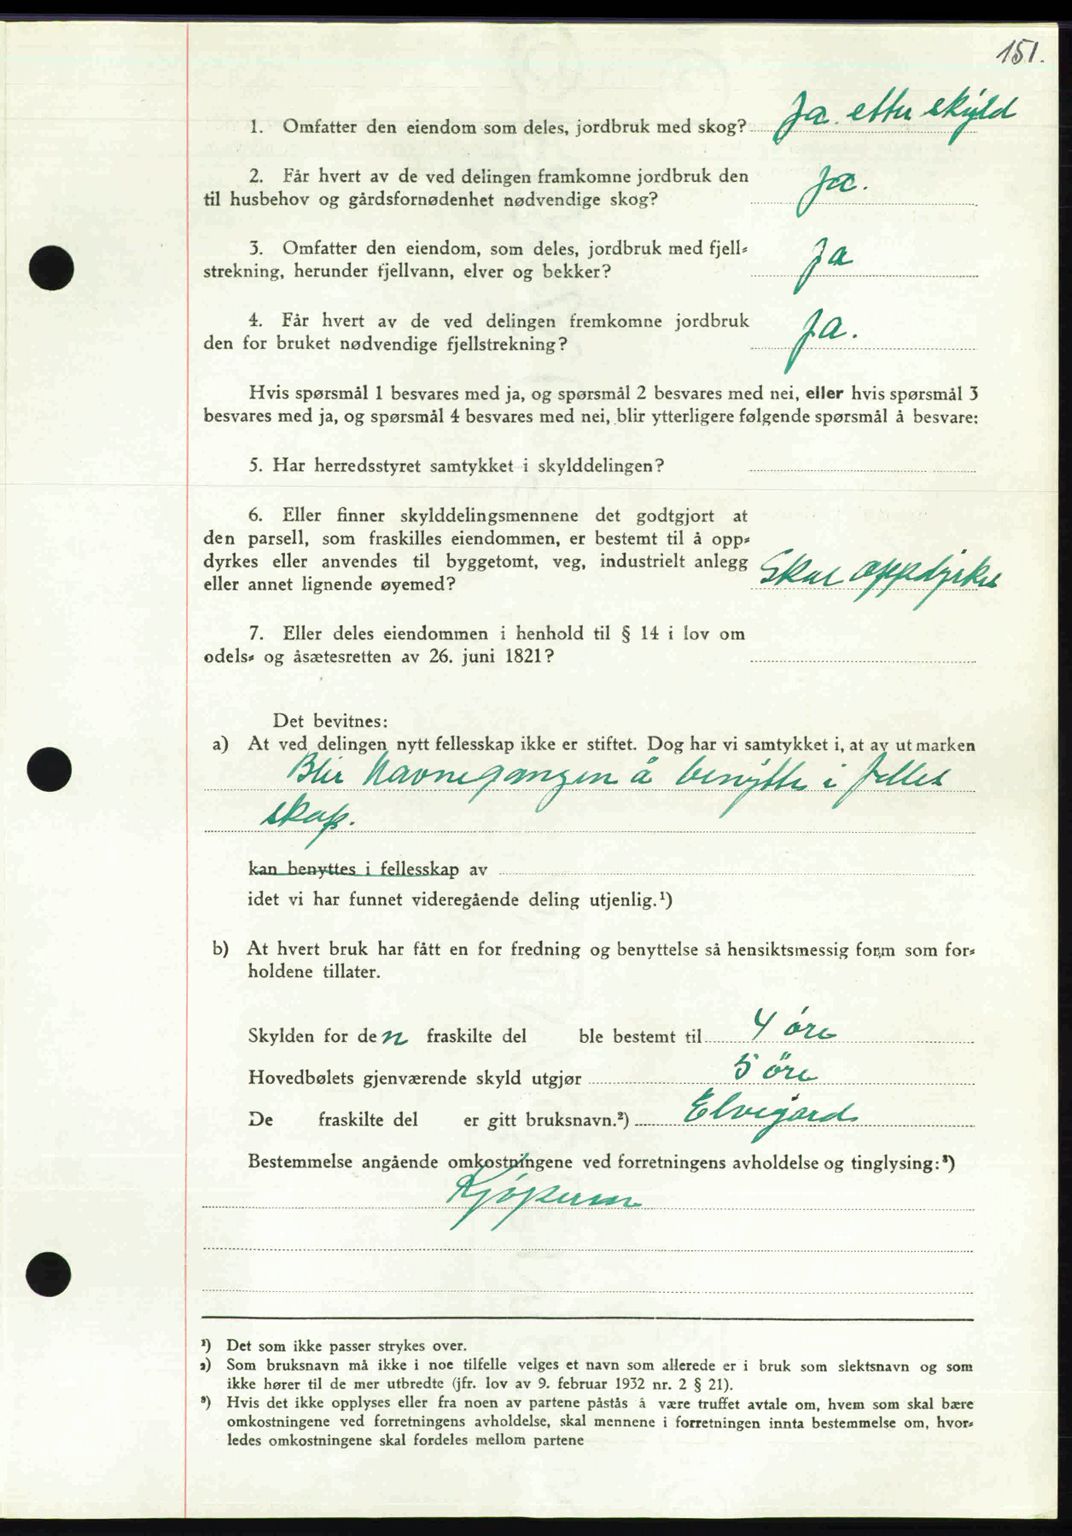 151.
1. Omfatter den eiendom som deles, jordbruk med skog? Ja. etter skyld
2. Får hvert av de ved delingen framkomne jordbruk den
til husbehov og gårdsfornødenhet nødvendige skog? Ja.
3. Omfatter den eiendom, som deles, jordbruk med fjell-
strekning, herunder fjellvann, elver og bekker? Ja
4. Får hvert av de ved delingen fremkomne jordbruk
den for bruket nødvendige fjellstrekning? Ja.
Hvis spørsmål 1 besvares med ja, og spørsmål 2 besvares med nei, eller hvis spørsmål 3
besvares med ja, og spørsmål 4 besvares med nei, blir ytterligere følgende spørsmål å besvare:
5. Har herredsstyret samtykket i skylddelingen?
6. Eller finner skylddelingsmennene det godtgjort at
den parsell, som fraskilles eiendommen, er bestemt til å opp-
dyrkes eller anvendes til byggetomt, veg, industrielt anlegg
eller annet lignende øyemed? Skal oppdyrkes
7. Eller deles eiendommen i henhold til § 14 i lov om
odels- og åsætesretten av 26. juni 1821?
Det bevitnes:
a) At ved delingen nytt fellesskap ikke er stiftet. Dog har vi samtykket i, at av utmarken
Blir Havnegangen å benytte i felles
skap.
kan benyttes i fellesskap av
idet vi har funnet videregående deling utjenlig.¹)
b) At hvert bruk har fått en for fredning og benyttelse så hensiktsmessig form som for-
holdene tillater.
Skylden for den fraskilte del ble bestemt til 4 öre
Hovedbølets gjenværende skyld utgjør 5 öre
De fraskilte del er gitt bruksnavn.²) Elvegård
Bestemmelse angående omkostningene ved forretningens avholdelse og tinglysing:³)
Kjöperen
¹) Det som ikke passer strykes over.
²) Som bruksnavn må ikke i noe tilfelle velges et navn som allerede er i bruk som slektsnavn og som
ikke hører til de mer utbredte (jfr. lov av 9. februar 1932 nr. 2 § 21).
³) Hvis det ikke opplyses eller fra noen av partene påstås å være truffet avtale om, hvem som skal bære
omkostningene ved forretningens avholdelse, skal mennene i forretningen innta bestemmelse om, hvor-
ledes omkostningene skal fordeles mellom partene